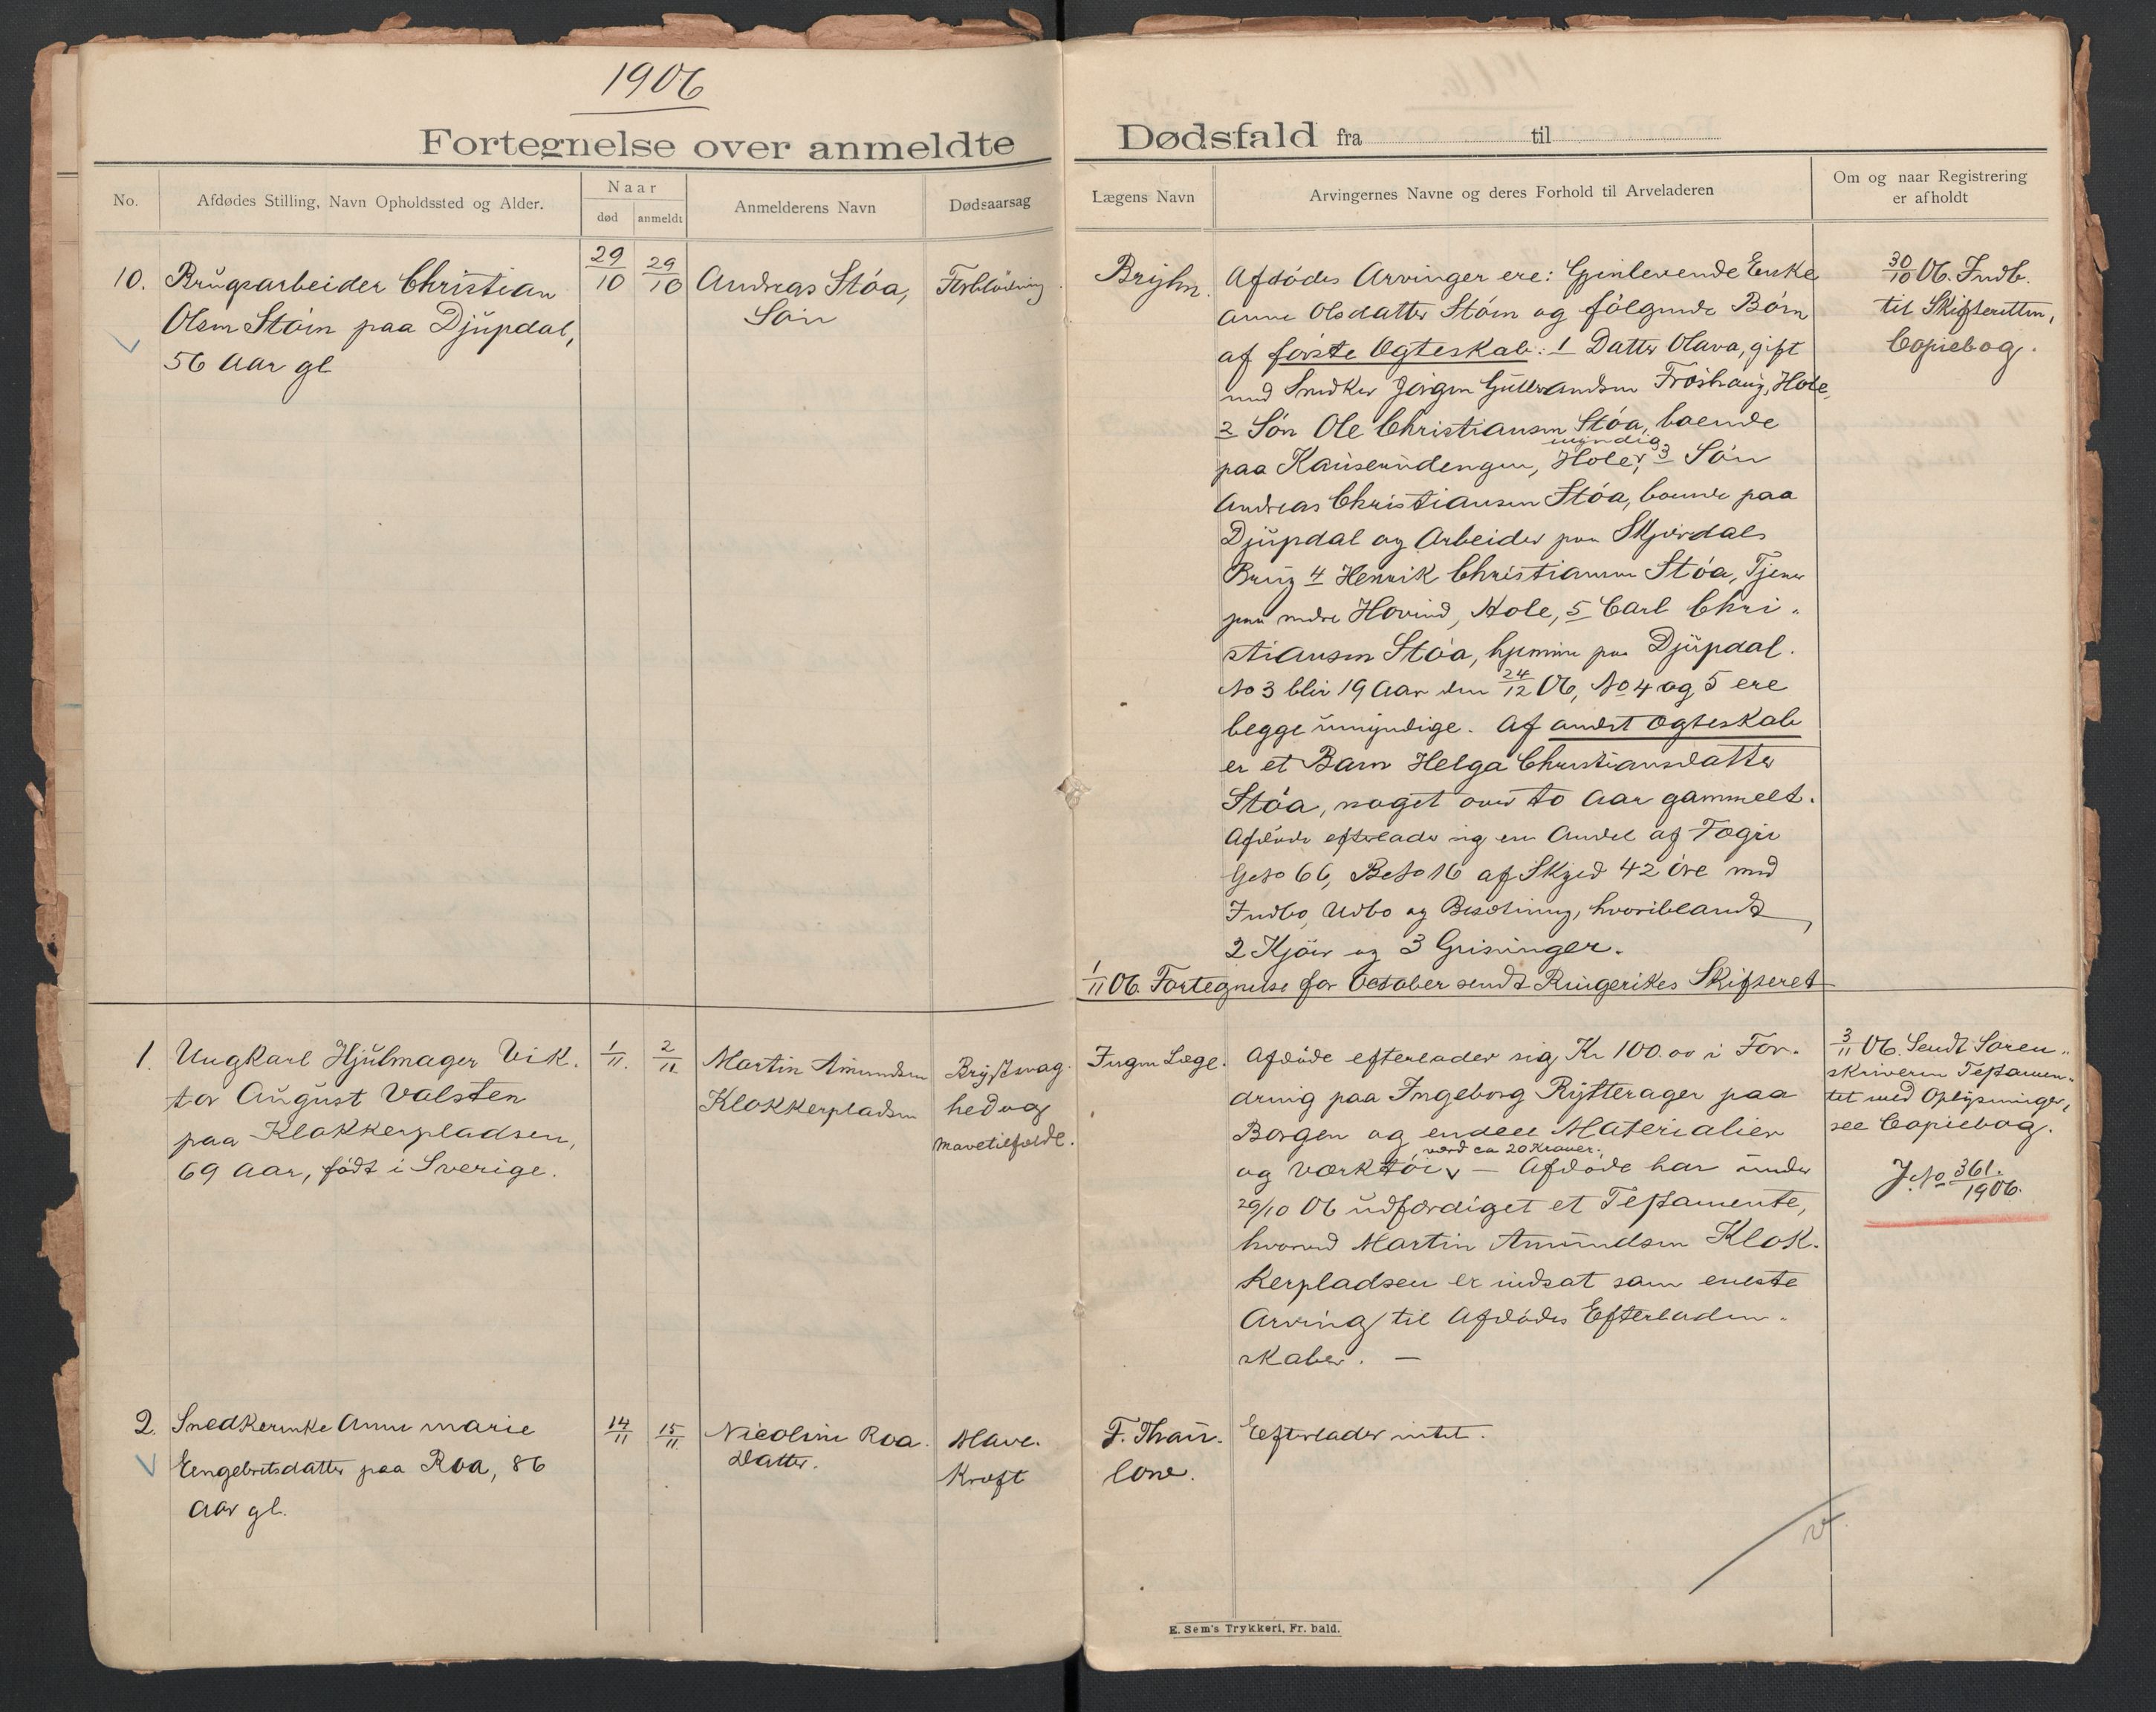 1906
Fortegnelse over anmeldte
Dødsfald fra til
No.
Afdødes Stilling, Navn Opholdssted og Alder.
Naar
død
anmeldt
Anmelderens Navn
Dødsaarsag
Lægens Navn
Arvingernes Navne og deres Forhold til Arveladeren
Om og naar Registrering
er afholdt
10. Brugsarbeider Christian
Olsen Stóen paa Djupdal,
56 Aar gl
29/10
29/10
Andreas Stóa,
Sön
Forblödning
Bryhn.
Afdödes Arvinger ere: Gjenlevende Enke
Anne Olsdatter Stóen og fölgende Börn
af förste Ægteskab: 1 Datter Olava, gift
med Snedker Jörgen Gulbrandsen Fröshaug, Hole,
2 Sön Ole Christiansen Stóa, boende
myndig
paa Hole, 3 Sön
Andreas Christiansen Stóa, boende paa
Djupdal og Arbeider paa Skjærdals
Brug 4 Henrik Christiansen Stóa, Tjener
paa nedre Hovind, Hole, 5 Carl Chri-
stiansen Stóa, hjemme paa Djupdal.
No 3 blir 19 Aar den 24/12 06, No 4 og 5 ere
begge umyndige. Af andet Ægteskab
er et Barn Helga Christiansdatter
Stóa, noget over to Aar gammelt.
Afdöde efterlader sig en Andel af
Gno 66, Bno 16 af Skyld 42 öre med
Indbo, Udbo og Besætning, hvoriblandt
2 Kjöer og 3 Grisunger.
30/10 06. Indb.
til Skifteretten,
Copiebog.
1/11 06. Fortegnelse for October sendt Ringerikes Skifteret
1. Ungkarl Hjulmager Vik-
tor August Valsten
paa Klokkerpladsen,
69 Aar, födt i Sverige.
1/11.
2/11
Martin Amundsen
Klokkerpladsen
Brystsvag-
hed og
mavetilfælde.
Ingen Læge.
Afdöde efterlader sig Kr 100.00 i For-
dring paa Ingeborg Rytterager paa
Borgen og endeel Materialier
værd ca 20 Kroner.
og Værktöi v — Afdöde har under
29/10 06 udfærdiget et Testamente,
hvorved Martin Amundsen Klok-
kerpladsen er indsat som eneste
Arving til Afdödes Efterladen-
skaber. —
3/11 06. Sendt Soren-
skriveren Testamen-
tet med Oplysninger,
see Copiebog.
J. No 361./1906.
2. Snedkerenke Anne Marie
Engebretsdatter paa Roa, 86
Aar gl.
14/11
15/11
Nicoline Roa.
Datter.
Mave-
Kræft
F. Thau-
low.
Efterlader intet.
E. Sem's Trykkeri, Fr. hald.